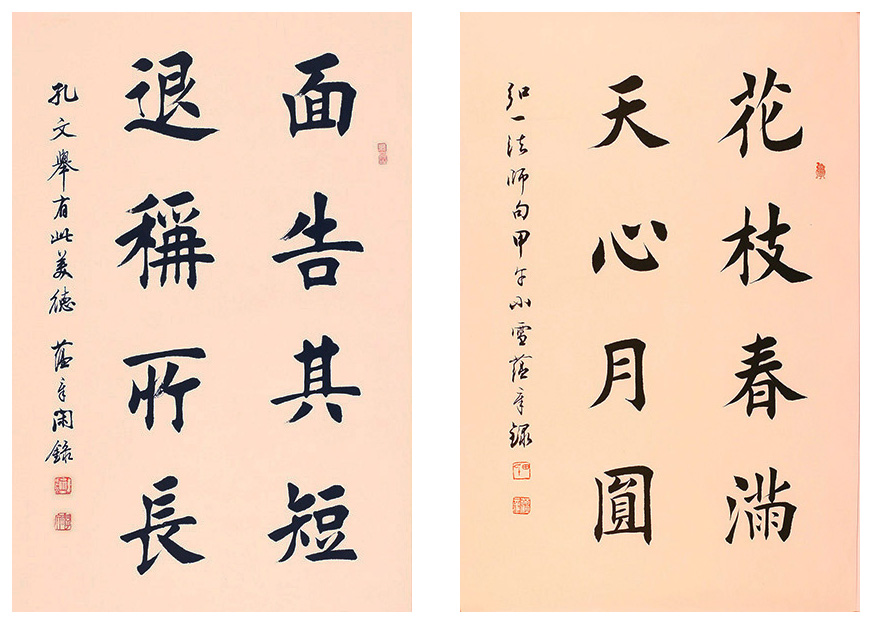 面告其短
退稱所長
孔文舉有此美德 蘊章閑錄
花枝春滿
天心月圓
弘一法師句甲午小雪蘊章錄